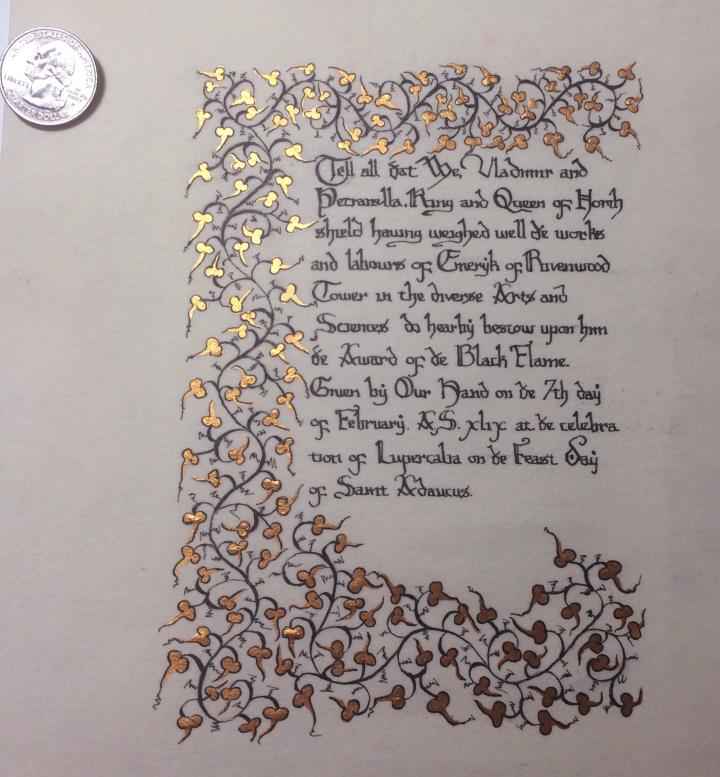 UNITED STATES OF AMERICA
LIBERTY
QUARTER DOLLAR
Tell all ðat We, Vladimir and
Petranilla, King and Queen of North
shield having weighed well ðe works
and labours of Emerijk of Rivenwood
Tower in the diverse Arts and
Sciences do hearby bestow upon him
ðe Award of ðe Black Flame.
Given by Our Hand on ðe 7th day
of February, A.S. xlix at ðe celebra
tion of Lupercalia on ðe Feast Day
of Saint Adaucus.